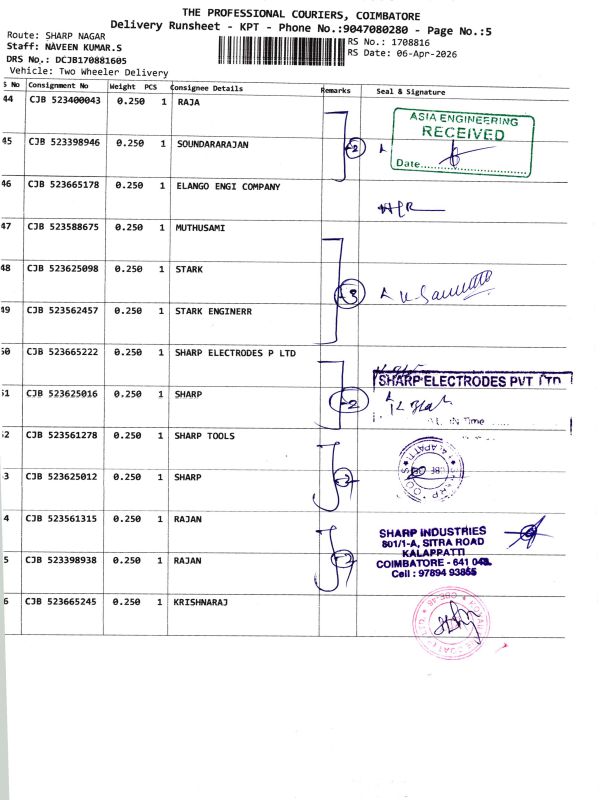 THE PROFESSIONAL COURIERS, COIMBATORE
Delivery Runsheet - KPT - Phone No.:9047080280 - Page No.:5
Route: SHARP NAGAR
RS No.: 1708816
Staff: NAVEEN KUMAR.S
RS Date: 06-Apr-2026
DRS No,: DCJB170881605
Vehicle: Two Wheeler Delivery
S No Consignment No Weight PCS Consignee Details Remarks Seal & Signature
44 CJB 523400043 0.250 1 RAJA
ASIA ENGINEERING
RECEIVED
Date
45 CJB 523398946 0.250 1 SOUNDARARAJAN
2
46 CJB 523665178 0.250 1 ELANGO ENGI COMPANY
47 CJB 523588675 0.250 1 MUTHUSAMI
48 CJB 523625098 0.250 1 STARK
3
49 CJB 523562457 0.250 1 STARK ENGINERR
50 CJB 523665222 0.250 1 SHARP ELECTRODES P LTD
SHARP ELECTRODES PVT LTD
51 CJB 523625016 0.250 1 SHARP
2
Time
52 CJB 523561278 0.250 1 SHARP TOOLS
3 CJB 523625012 0.250 1 SHARP
4 CJB 523561315 0.250 1 RAJAN
SHARP INDUSTRIES
801/1-A, SITRA ROAD
KALAPPATTI
COIMBATORE - 641 048.
Cell : 97894 93855
5 CJB 523398938 0.250 1 RAJAN
6 CJB 523665245 0.250 1 KRISHNARAJ